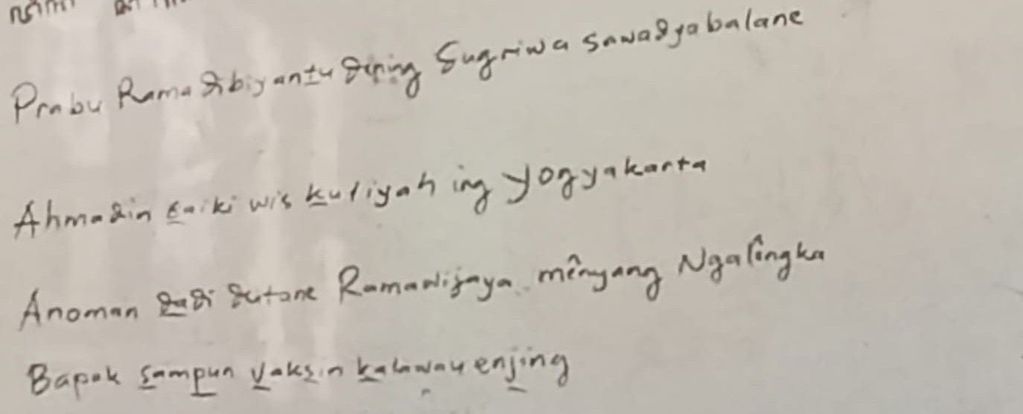 Prabu Rama dibiyantu dening Sugriwa sawadyabalane
Ahmadin saiki wis kuliyah ing Yogyakarta
Anoman dadi dutane Ramawijaya mênyang Ngalêngka
Bapak sampun vaksin kalawau enjing